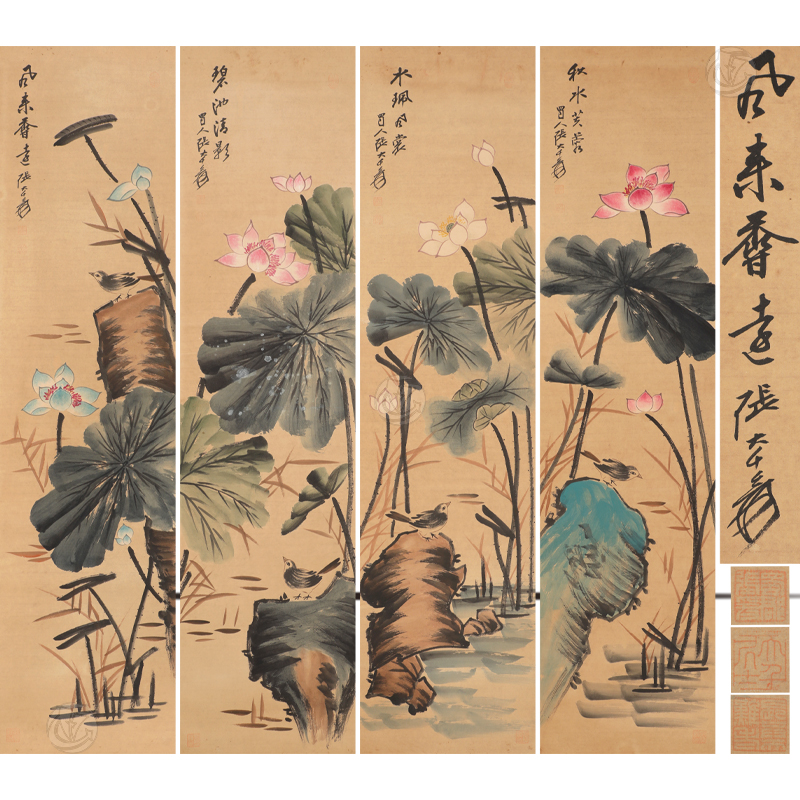 風来香遠 張大千爰
碧池清影
蜀人張大千爰
水珮風裳
蜀人張大千爰
秋水芙蓉
蜀人張大千爰
風来香遠 張大千爰